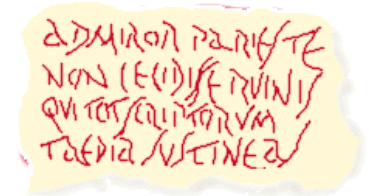 ADMIROR PARIES TE
NON CECIDISSE RVINIS
QVI TOT SCRIPTORVM
TAEDIA SVSTINEAS